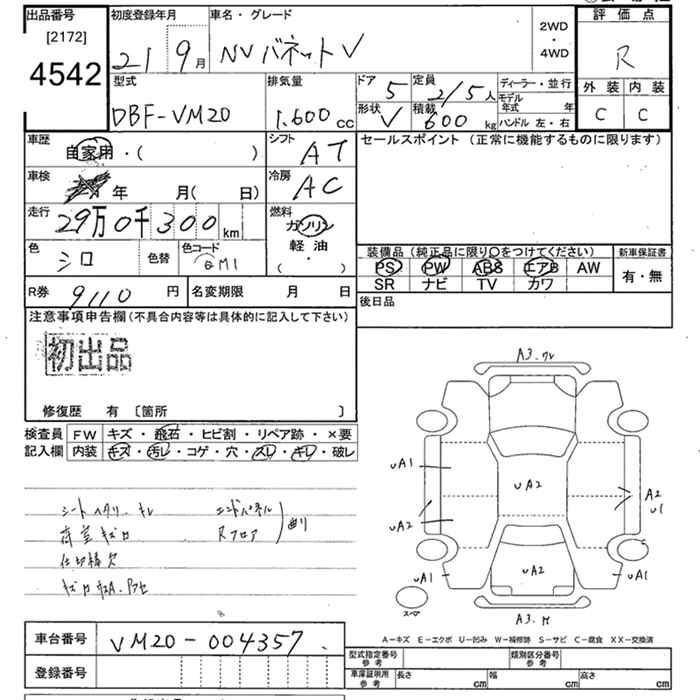 出品番号 初度登録年月 車名・グレード 評価点
[2172] 21 9月 NVバネットV 2WD・4WD R
4542 型式 排気量 ドア 5 定員 2/5人 ディーラー・並行 外装 内装
DBF-VM20 1.600cc 形状 V 積載 600kg モデル年式 年 C C
ハンドル 左・右
車歴 自家用・( ) シフト AT セールスポイント (正常に機能するものに限ります)
車検 年 月( 日) 冷房 AC
走行 29万0千300km 燃料 ガソリン
軽油
( )
色 シロ 色替 色コード 装備品 (純正品に限り〇をつけてください) 新車保証書
PS PW ABS エアB AW 有・無
SR ナビ TV カワ
R券 9110円 名変期限 月 日 後日品
注意事項申告欄(不具合内容等は具体的に記入して下さい)
初出品
修復歴 有 〔箇所 〕
検査員 FW キズ・飛石・ヒビ割・リペア跡・×要
記入欄 内装 キズ・汚レ・コゲ・穴・スレ・キレ・破レ
A3.
uA1
uA2
uA2
A2
u1
uA2
uA1
uA1
スペア
A3.
シート キレ
エンドパネル
Rフロア
曲リ
A-キズ E-エクボ U-凹み W-補修跡 S-サビ C-腐食 XX-交換済
車台番号 VM20-004357. 型式指定番号 参考 類別区分番号 参考
登録番号 車庫証明用 参考 長さ cm 幅 cm 高さ cm